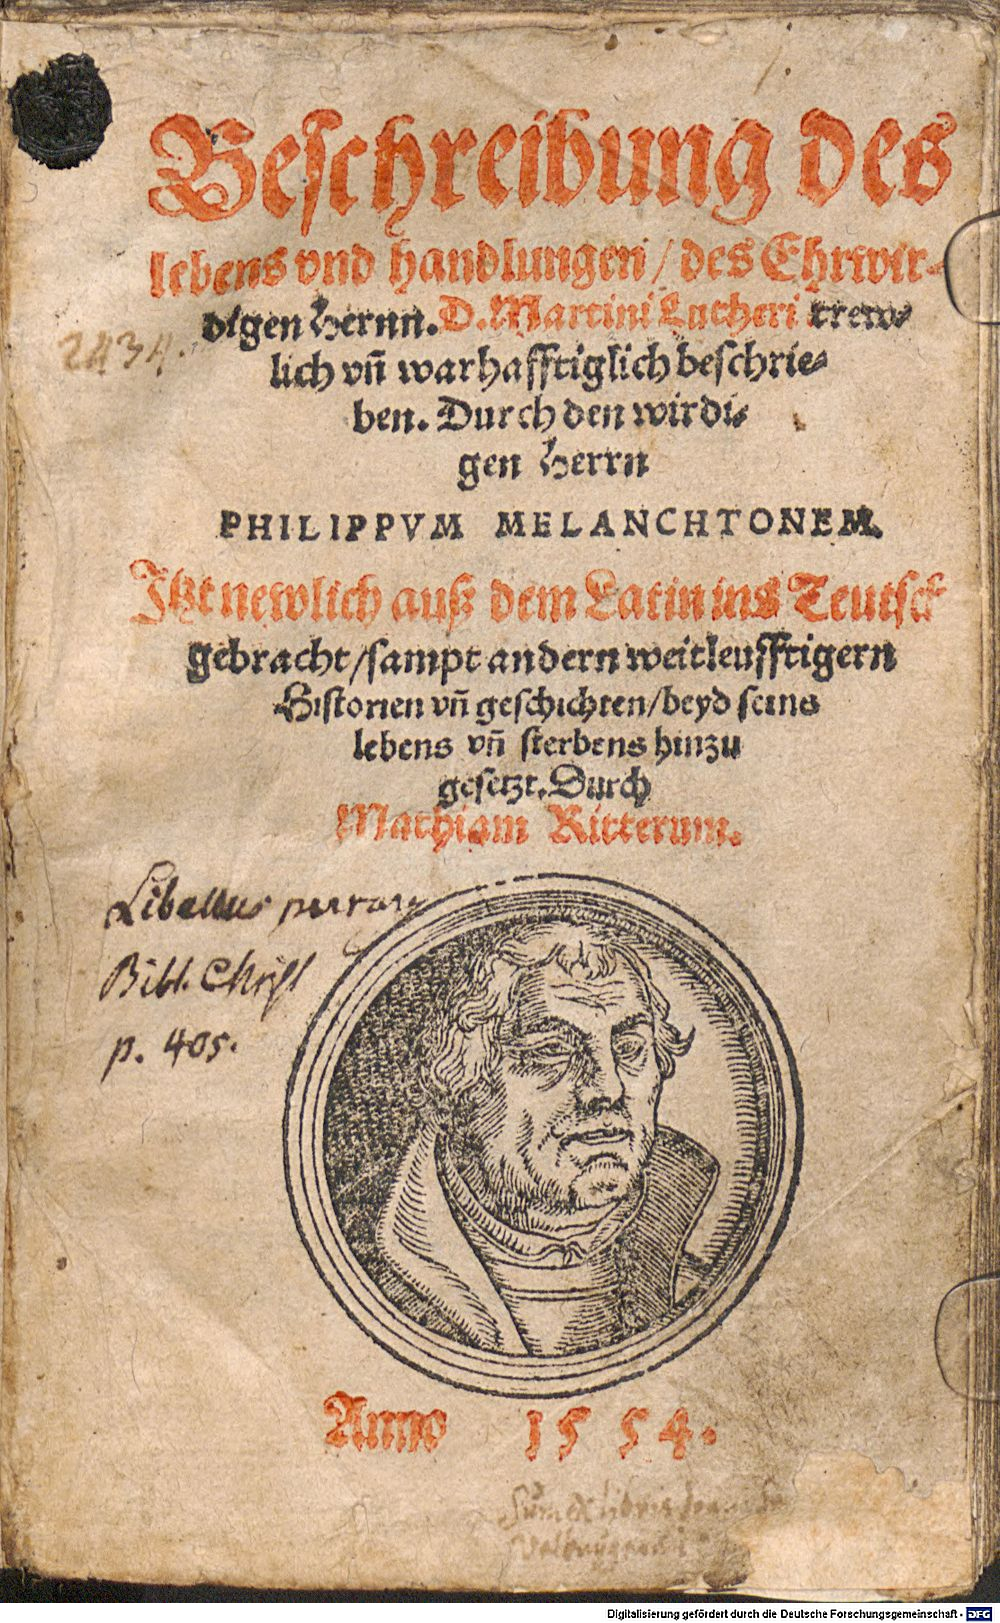 Beschreibung des
lebens vnd handlungen / des Ehrwir-
digen Hernn. D. Martini Lutheri trew-
lich vñ warhafftiglich beschrie-
ben. Durch den wirdi-
gen Herrn
PHILIPPVM MELANCHTONEM.
Itzt newlich auß dem Latin ins Teutsch
gebracht / sampt andern weitleufftigern
Historien vñ geschichten / beyd seins
lebens vñ sterbens hinzu
gesetzt. Durch
Mathiam Ritterum.
2434.
Libellus perrarus
Bibl. Christ
p. 405.
Anno 1554.
Sum ex libris
Digitalisierung gefördert durch die Deutsche Forschungsgemeinschaft - DFG